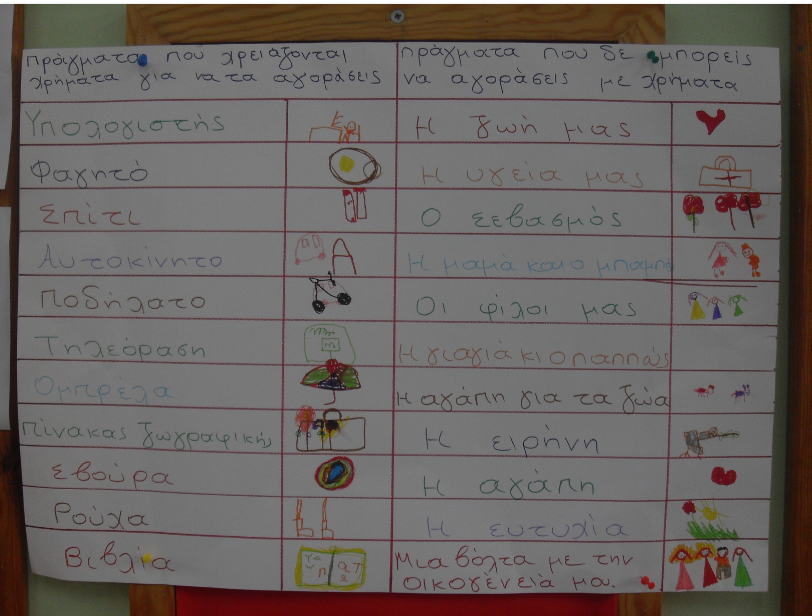 πράγματα που χρειάζονται
χρήματα για να τα αγοράσεις
πράγματα που δε μπορείς
να αγοράσεις με χρήματα
Υπολογιστής
Η ζωή μας
Φαγητό
Η υγεία μας
Σπίτι
Ο σεβασμός
Αυτοκίνητο
Η μαμά και ο μπαμπά
Ποδήλατο
Οι φίλοι μας
Τηλεόραση
Η γιαγιά κι ο παππώς
Ομπρέλα
Η αγάπη για τα ζώα
πίνακας ζωγραφικής
Η ειρήνη
Σβούρα
Η αγάπη
Ρούχα
Η ευτυχία
Βιβλία
Μια βόλτα με την
οικογένειά μου.